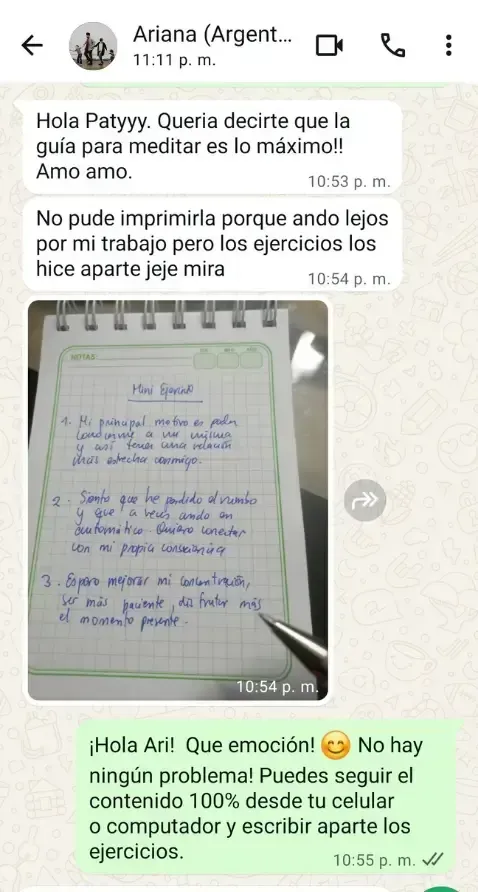 Ariana (Argent...
11:11 p. m.
Hola Patyyy. Queria decirte que la
guía para meditar es lo máximo!!
Amo amo.
10:53 p. m.
No pude imprimirla porque ando lejos
por mi trabajo pero los ejercicios los
hice aparte jeje mira
10:54 p. m.
NOTAS
Mini Ejercicio
1. Mi principal motivo es poder
conocerme a mi misma
y así tener una relación
más estrecha conmigo.
2. Siento que he perdido el rumbo
y que a veces ando en
automático. Quiero conectar
con mi propia consciencia
3. Espero mejorar mi concentración,
ser más paciente, disfrutar más
el momento presente.
10:54 p. m.
¡Hola Ari! Que emoción! 😊 No hay
ningún problema! Puedes seguir el
contenido 100% desde tu celular
o computador y escribir aparte los
ejercicios.
10:55 p. m.